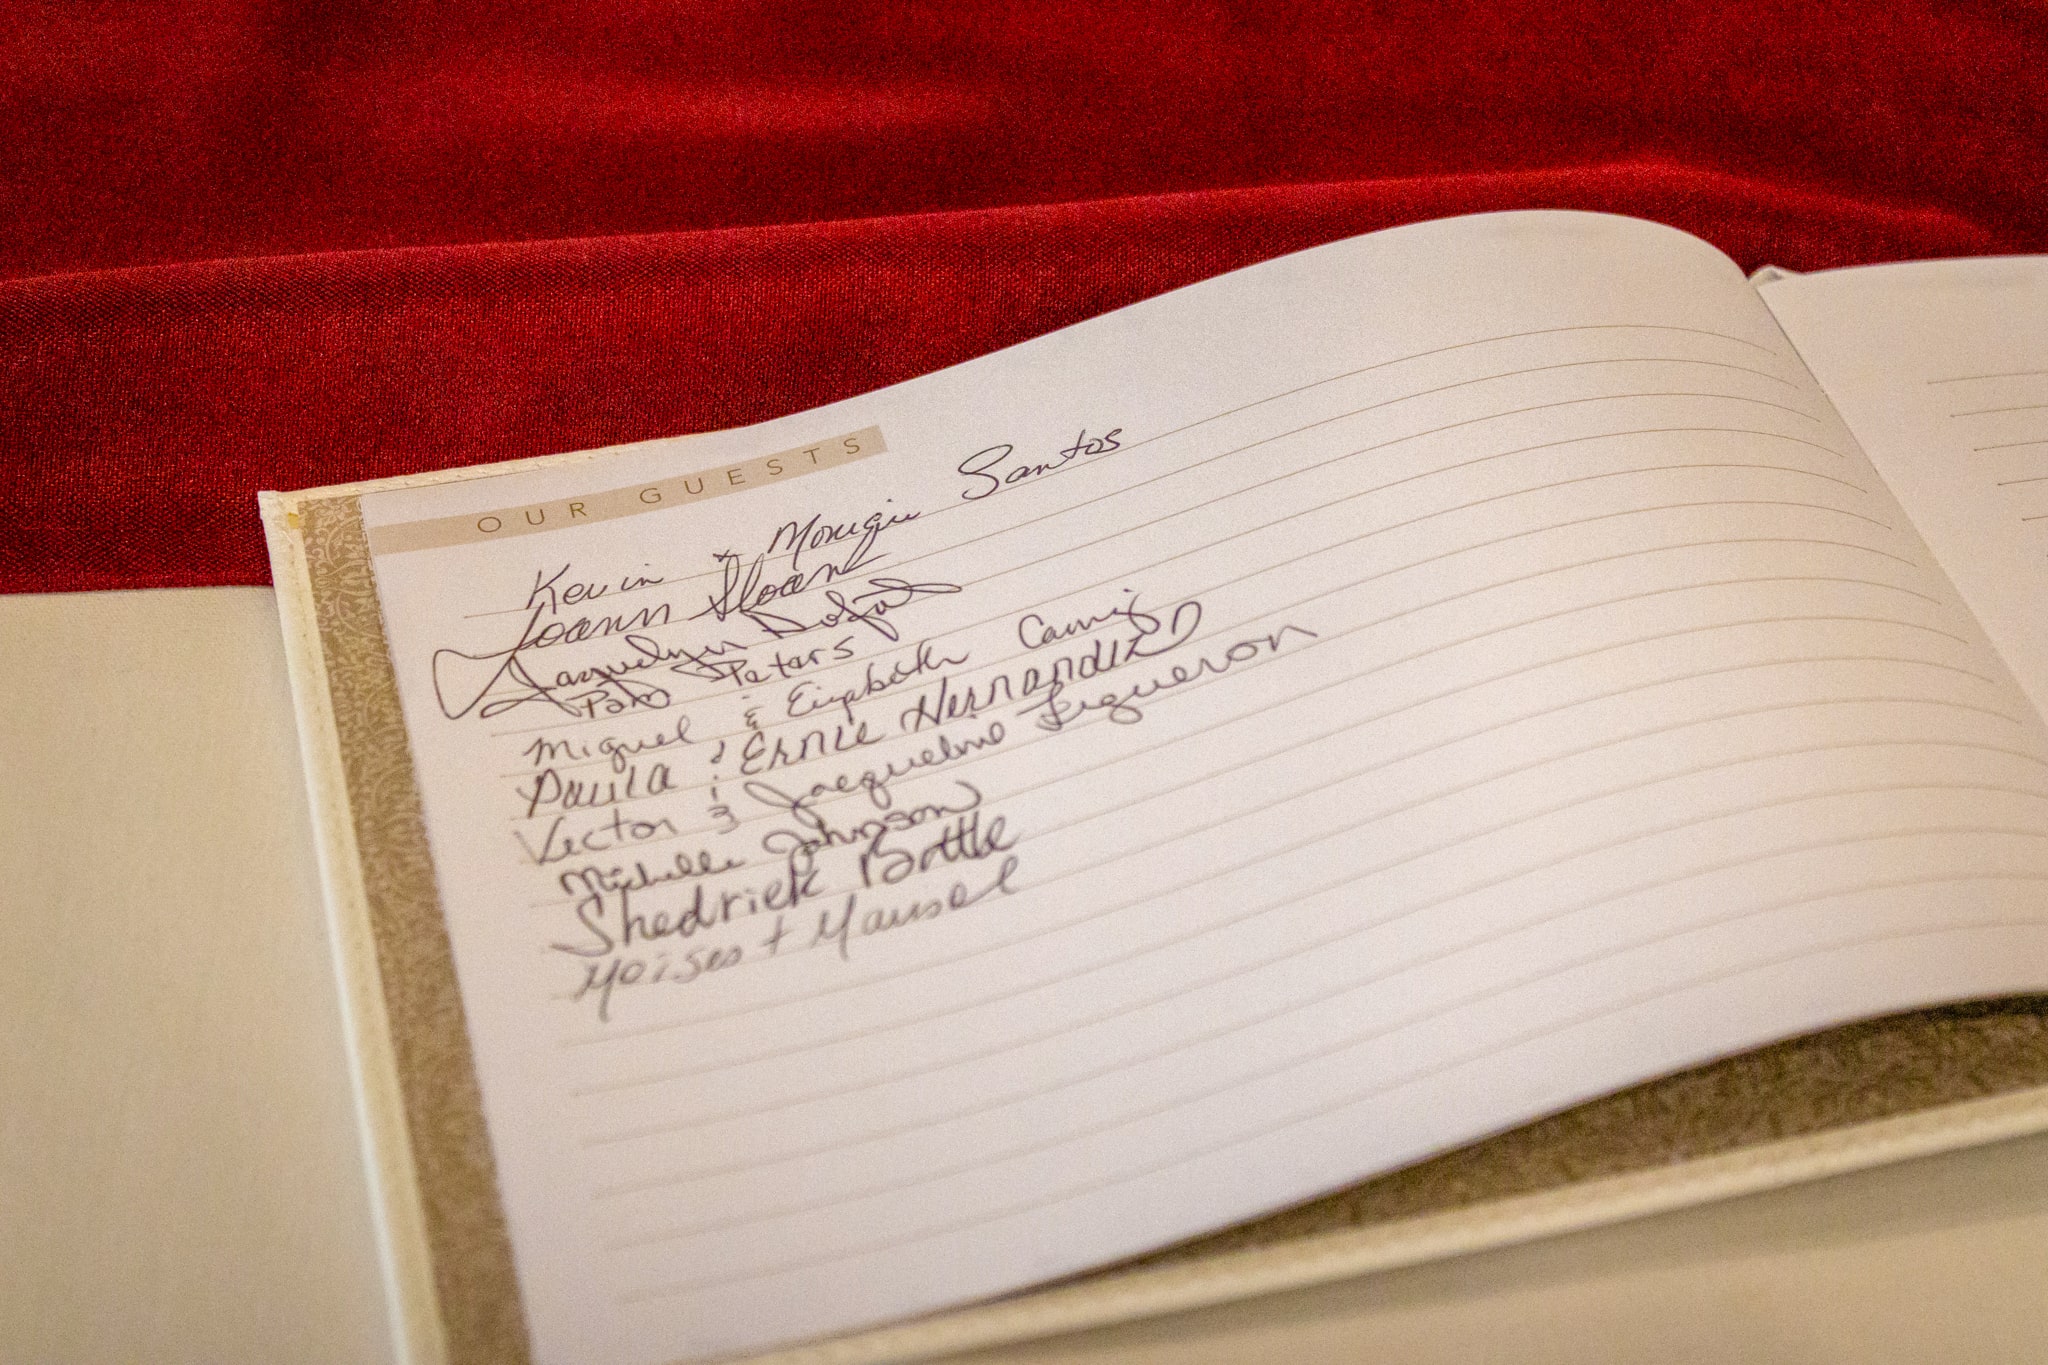 OUR GUESTS
Kevin & Monique Santos
Joann Sloan
Jacquelyn
Pam Peters
Miguel & Elizabeth
Paula & Ernie Hernandez
Vector & Jacqueline Figueron
Michelle Johnson
Shedrick Bottle
Moises + Marisol